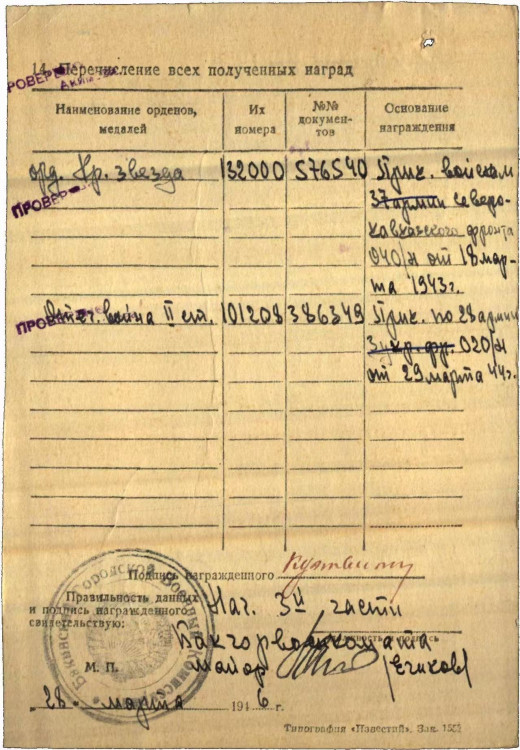 14. Перечисление всех полученных наград
ПРОВЕРЕНО
Наименование орденов, медалей
Их номера
№№ докумен-тов
Основание награждения
орд. Кр. звезда 132000 576540 Прик. войскам
ПРОВЕР
37 армии Северо-
Кавказского фронта
040/н от 18 мар-
та 1943г.
ПРОВЕ
Отеч. война II ст. 101208 386349 Прик. по 28 армии
3 укр. фр. 020/н
от 29 марта 44г.
Подпись награжденного
Правильность данных
и подпись награжденного
свидетельствую:
Нач. 3й части
Бакгорвоенкомата
майор
М. П.
28 марта 1946 г.
Бакинский Городской Военный Комисса
Типография «Известий». Зак.